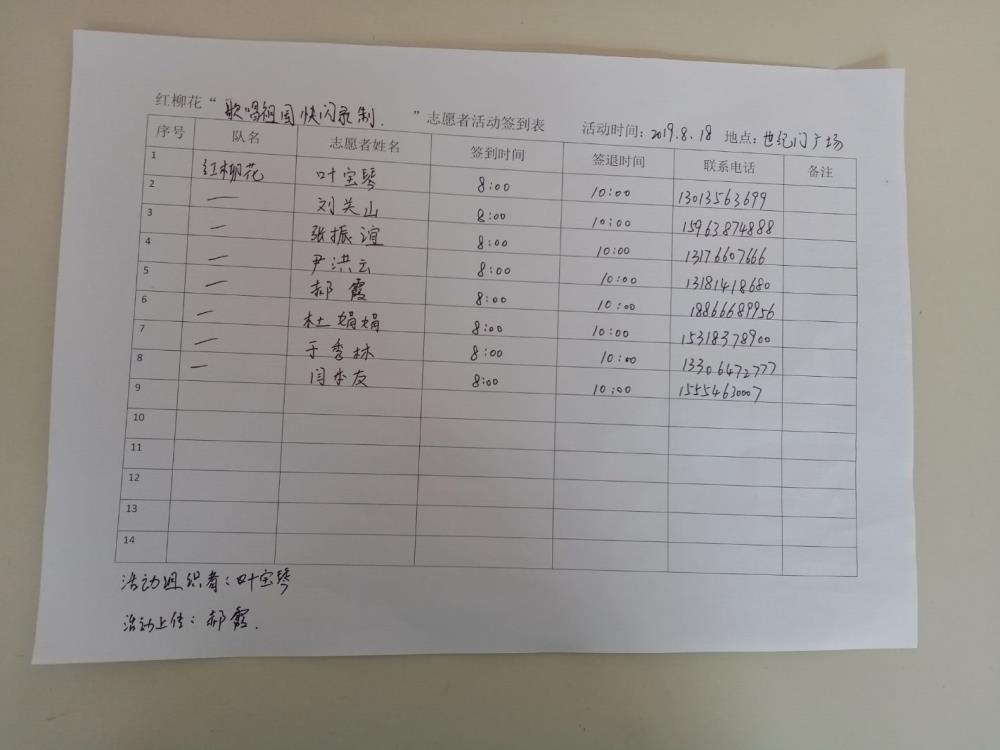 红柳花“歌唱祖国快闪录制.”志愿者活动签到表 活动时间：2019.8.18 地点：世纪门广场
序号 队名 志愿者姓名 签到时间 签退时间 联系电话 备注
1 红柳花 叶宝琴 8:00 10:00 13013563699
2 — 刘关山 8:00 10:00 15963874888
3 — 张振谊 8:00 10:00 13176607666
4 — 尹洪云 8:00 10:00 13181418680
5 — 郝霞 8:00 10:00 18866689956
6 — 杜娟娟 8:00 10:00 15318378900
7 — 于秀林 8:00 10:00 13306472777
8 — 闫李友 8:00 10:00 15554630007
9
10
11
12
13
14
活动组织者：叶宝琴
活动上传：郝霞.